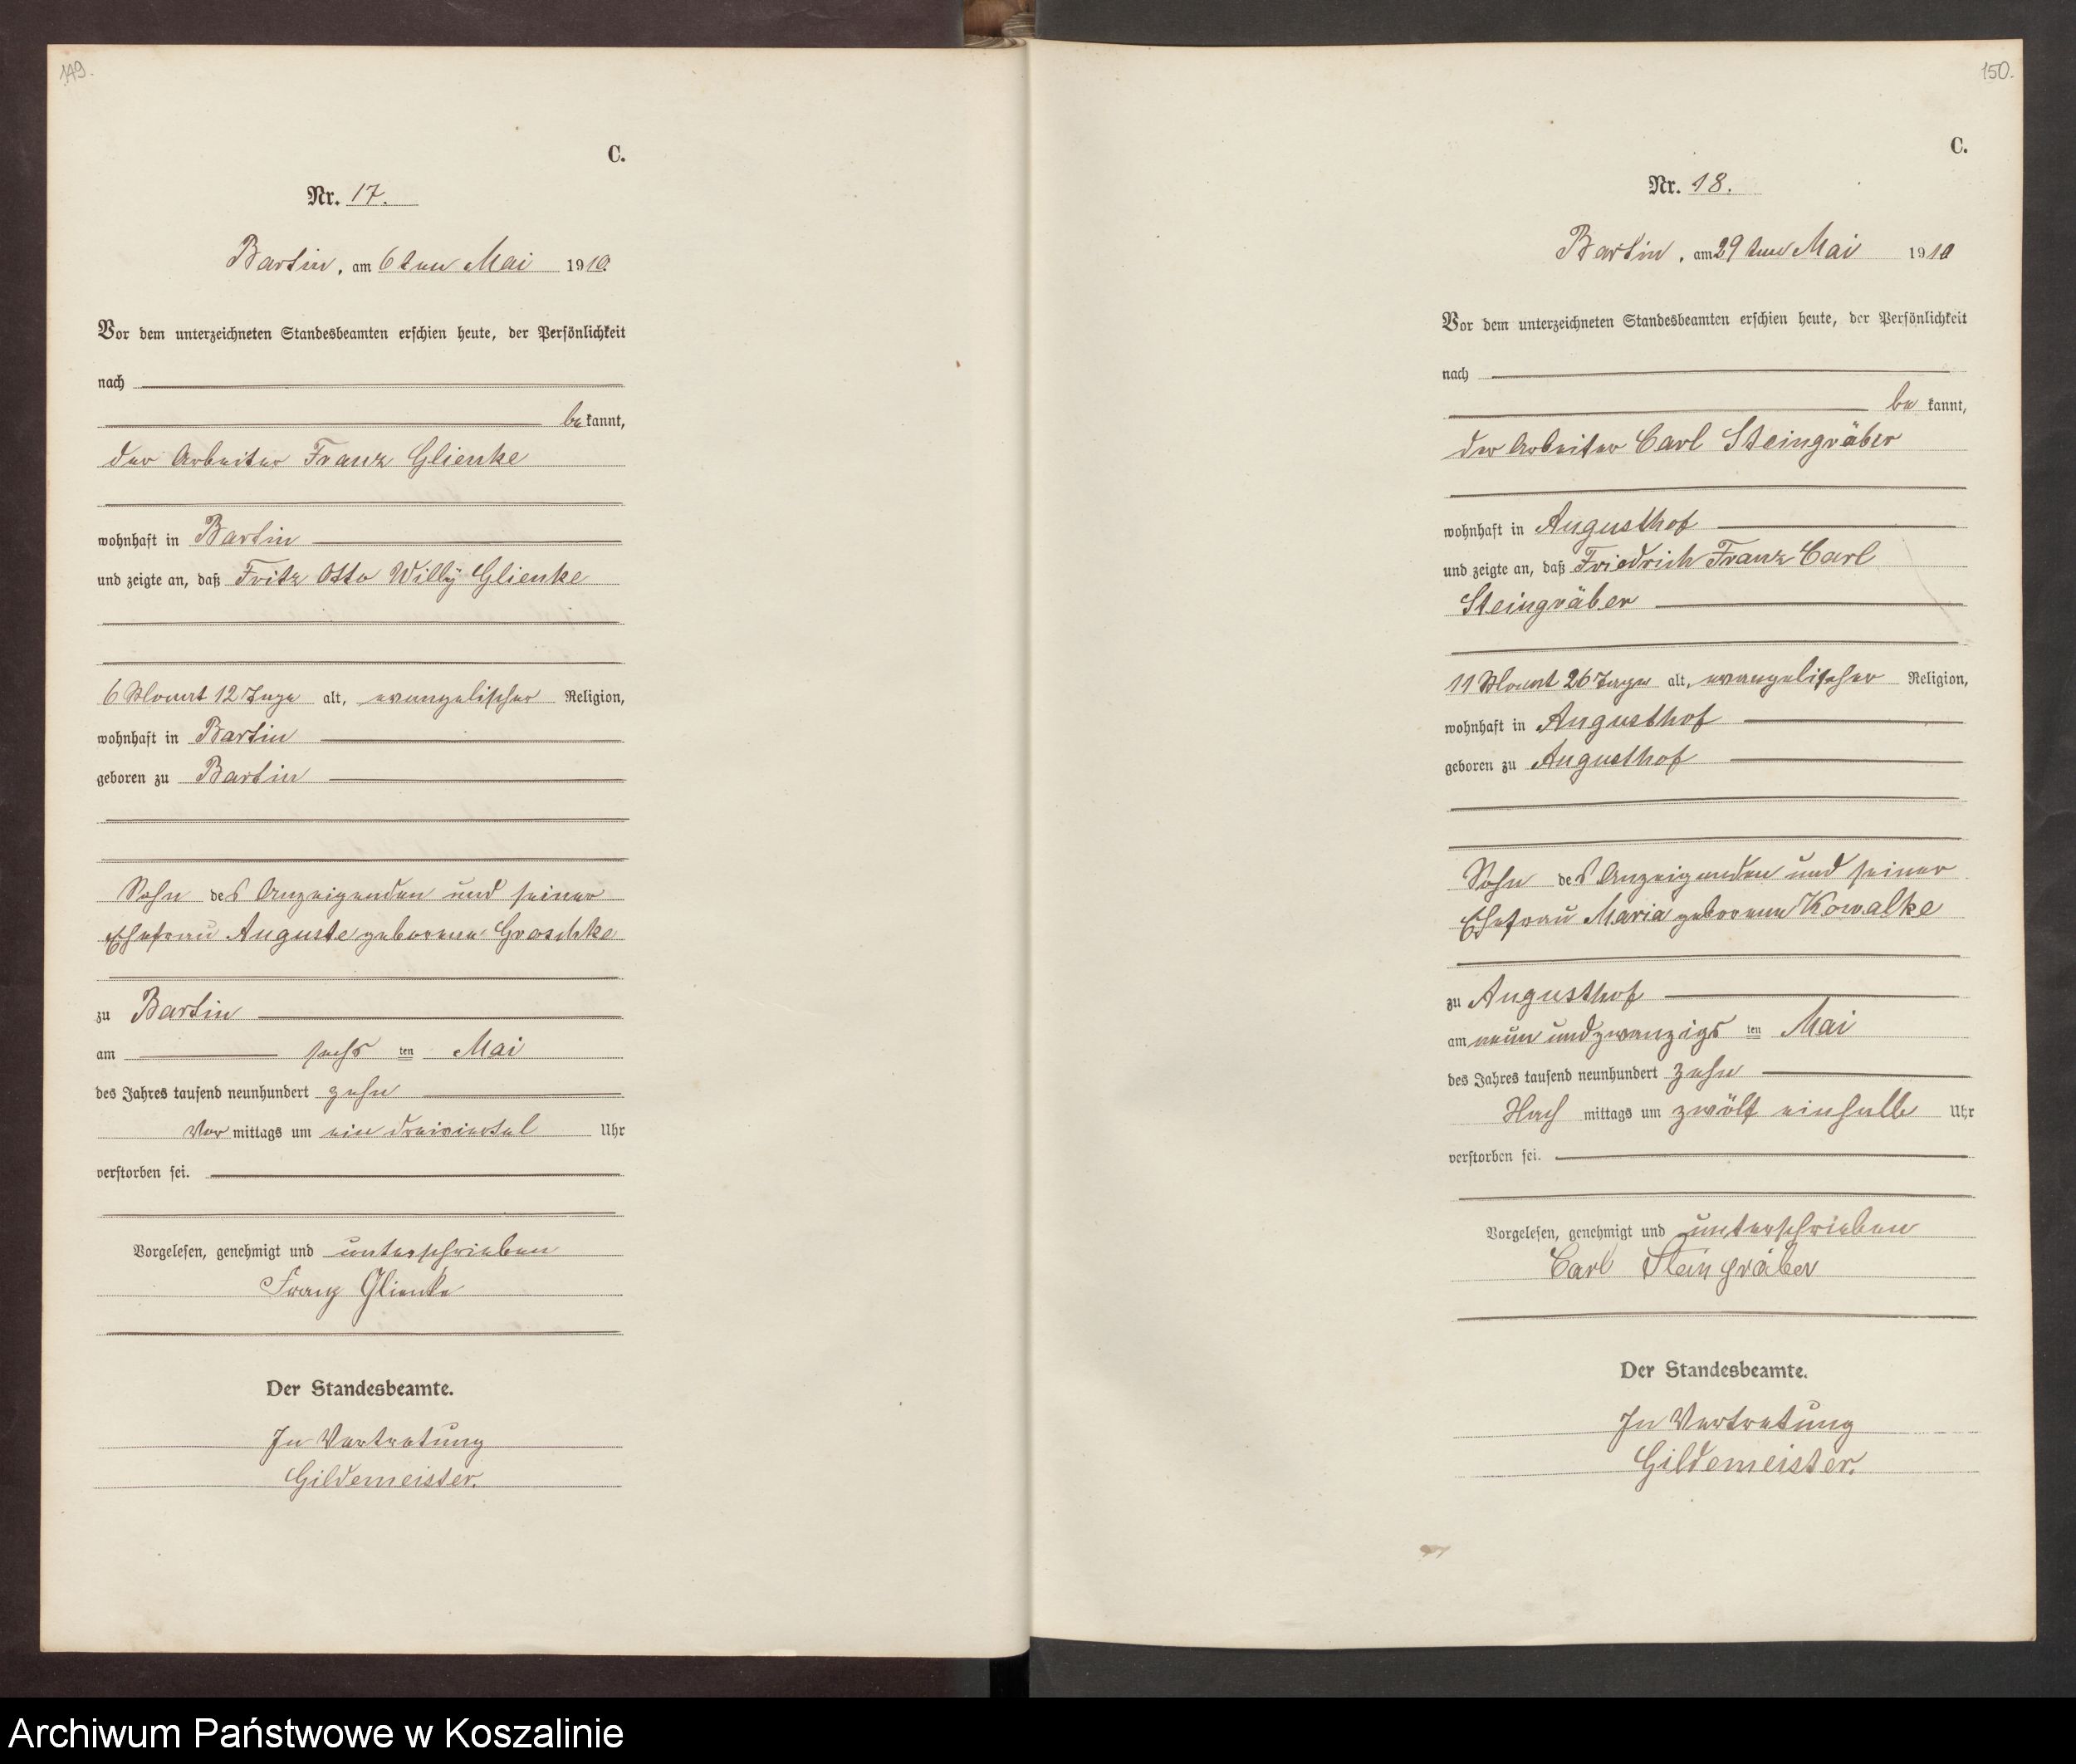 149.
C.
Nr. 17.
Bartin, am 6ten Mai 1910.
Vor dem unterzeichneten Standesbeamten erschien heute, der Persönlichkeit
nach
bekannt,
der Arbeiter Franz Glienke
wohnhaft in Bartin
und zeigte an, daß Fritz Otto Willy Glienke
6 Monat 12 Tage alt, evangelischer Religion,
wohnhaft in Bartin
geboren zu Bartin
Sohn des Anzeigenden und seiner
Ehefrau Auguste geborenen Groschke
zu Bartin
am sechsten Mai
des Jahres tausend neunhundert zehn
Vor mittags um ein dreiviertel Uhr
verstorben sei.
Vorgelesen, genehmigt und unterschrieben
Franz Glienke
Der Standesbeamte.
In Vertretung
Gildemeister.
150.
C.
Nr. 18.
Bartin, am 29ten Mai 1910
Vor dem unterzeichneten Standesbeamten erschien heute, der Persönlichkeit
nach
bekannt,
der Arbeiter Carl Steingräber
wohnhaft in Augusthof
und zeigte an, daß Friedrich Franz Carl
Steingräber
11 Monat 26 Tage alt, evangelischer Religion,
wohnhaft in Augusthof
geboren zu Augusthof
Sohn des Anzeigenden und seiner
Ehefrau Maria geborenen Kowalke
zu Augusthof
am neunundzwanzigsten Mai
des Jahres tausend neunhundert zehn
Nach mittags um zwölf einhalb Uhr
verstorben sei.
Vorgelesen, genehmigt und unterschrieben
Carl Steingräber
Der Standesbeamte.
In Vertretung
Gildemeister.
Archiwum Państwowe w Koszalinie